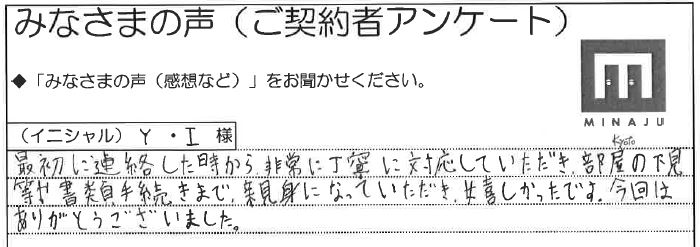 みなさまの声(ご契約者アンケート)
◆「みなさまの声(感想など)」をお聞かせください。
MINAJU
Kyoto
(イニシャル) Y・I 様
最初に連絡した時から、非常に丁寧に対応していただき、部屋の下見
等や書類手続きまで、親身になっていただき、嬉しかったです。今回は
ありがとうございました。